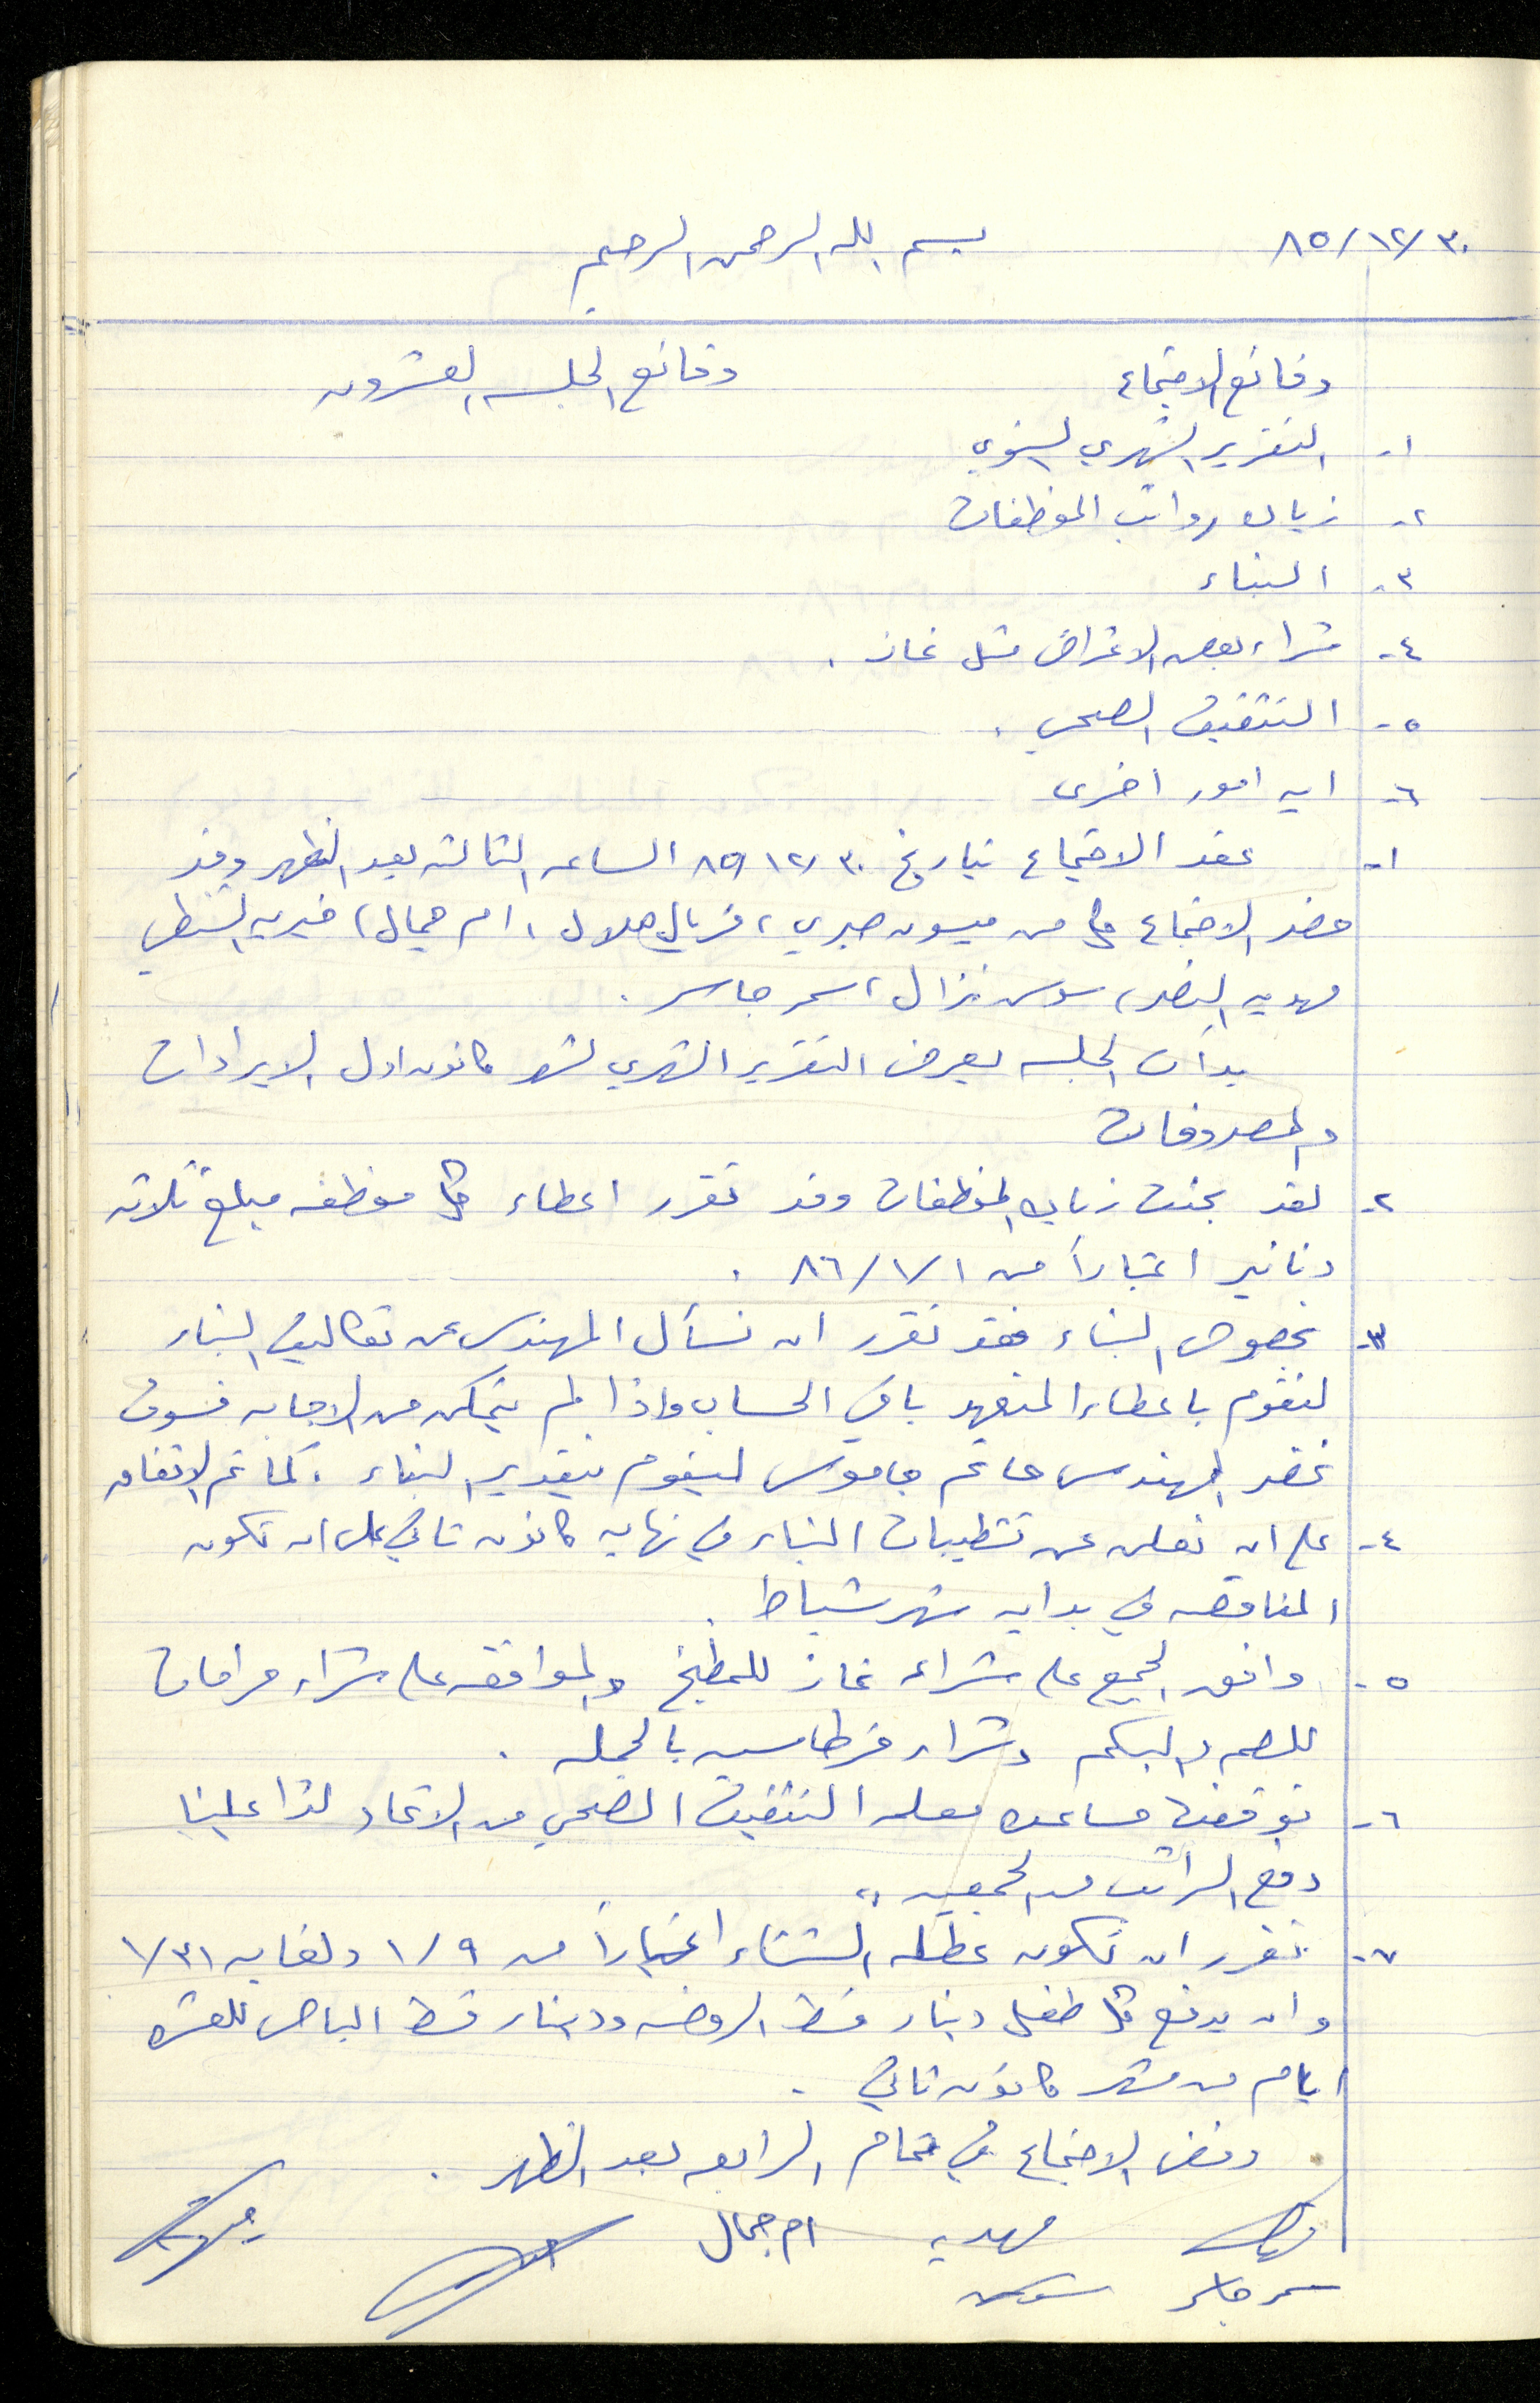 ٨٥/١٢/٣٠ بسم الله الرحمن الرحيم
وقائع الاجتماع وقائع الجلسه العشرون
١- التقرير الشهري السنوي
٢- زياده رواتب الموظفات
٣- البناء
٤- شراء بعض الاغراض مثل غاز .
٥- التثقيف الصحي .
٦- ايه امور اخرى
١- عقد الاجتماع بتاريخ ٨٥/١٢/٣٠ الساعه الثالثه بعد الظهر وقد
حضر الاجتماع كل من ميسون صبري ، فريال هلال ، ام جمال ، خيريه
مهديه ، سوسن نزال ، سمر جاسر .
بدأت الجلسه بعرض التقرير الشهري لشهر كانون اول الايرادات
والمصروفات
٢- لقد بحثت زياده الموظفات وقد تقرر اعطاء كل موظفه مبلغ ثلاثه
دنانير اعتباراً من ٨٦/١/١ .
٣- بخصوص البناء فقد تقرر ان نسأل المهندس عن تكاليف البناء
لنقوم باعطاء المتعهد باقي الحساب واذا لم يتمكن من الاجابه فسوف
نحضر المهندس حاتم جاموس ليقوم بتقدير البناء . كما تم الاتفاق
٤- على ان نعلن عن تشطيبات البناء في نهايه كانون ثاني على ان تكون
المناقصه في بدايه شهر شباط .
٥- وافق الجميع على شراء غاز للمطبخ والموافقه على شراء مرامات
للصم والبكم وشراء قرطاسيه بالجمله .
٦- توقفت مساعده معلمه التثقيف الصحي من الاتحاد لذا علينا
دفع الراتب من الجمعيه "
٧- تقرر ان تكون عطله الشتاء اعتباراً من ١/٩ ولغايه ١/٣١
وان يدفع كل طفل دينار قسط الروضه ودينار قسط الباص للعشره
ايام من شهر كانون ثاني .
وفض الاجتماع في تمام الرابعه بعد الظهر .
مهديه ام جمال
سمر جاسر سوسن